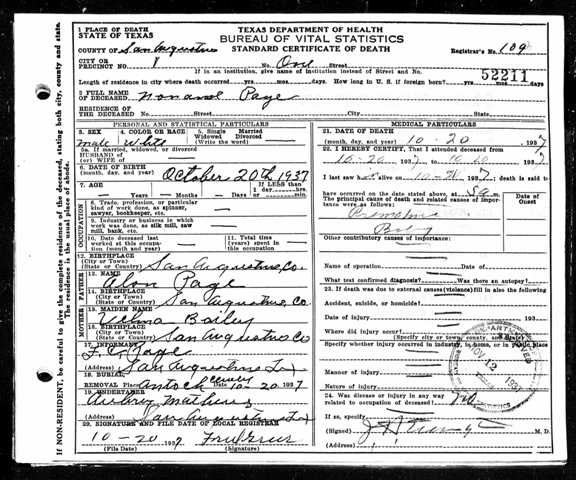 1 PLACE OF DEATH
STATE OF TEXAS
COUNTY OF San Augustine
CITY OR
PRECINCT NO. 1
TEXAS DEPARTMENT OF HEALTH
BUREAU OF VITAL STATISTICS
STANDARD CERTIFICATE OF DEATH
Registrar's No. 109
No. One Street
If in an institution, give name of institution instead of Street and No.
52211
Length of residence in city where death occurred yrs. mos. days How long in U. S. if foreign born? yrs. mos. days
2 FULL NAME
OF DECEASED Page
RESIDENCE OF
THE DECEASED No. Street City State
PERSONAL AND STATISTICAL PARTICULARS
3. SEX 4. COLOR OR RACE 5. Single Married
Widowed Divorced
(Write the word)
male White
5a. If married, widowed or divorced
HUSBAND of
(or) WIFE of
6. DATE OF BIRTH
(month, day, and year) October 20th 1937
7. AGE
Years Months Days
If LESS than
1 day hrs.
or min.
8. Trade, profession, or particular
kind of work done, as spinner,
sawyer, bookkeeper, etc.
9. Industry or business in which
work was done, as silk mill, saw
mill, bank, etc.
10. Date deceased last
worked at this occupation
(month and year)
11. Total time
(years) spent in
this occupation
12. BIRTHPLACE
(City or Town)
(State or Country) San Augustine, Co.
FATHER
13. NAME Alon Page
14. BIRTHPLACE
(City or Town)
(State or Country) San Augustine, Co.
MOTHER
15. MAIDEN NAME Velma Bailey
16. BIRTHPLACE
(City or Town)
(State or Country) San Augustine Co
17. INFORMANT
F. C. Page
(Address) San Augustine Tx
18. BURIAL
REMOVAL Place Cemetery Date 10-20 1937
19. UNDERTAKER
Aubrey Mathews
(Address) San Augustine Tx
20. SIGNATURE AND FILE DATE OF LOCAL REGISTRAR
10-20 1937
(File Date) (Signature)
MEDICAL PARTICULARS
21. DATE OF DEATH
(month, day, and year) 10-20 1937
22. I HEREBY CERTIFY, That I attended deceased from
10-20 1937 to 10-20 1937
I last saw h alive on 10-20 1937 death is said to
have occurred on the date stated above, at 5 a m.
The principal cause of death and related causes of importance were as follows:
Date of
Onset
Premature
Baby
Other contributory causes of importance:
Name of operation
What test confirmed diagnosis? Was there an autopsy?
23. If death was due to external causes (violence) fill in also the following:
Accident, suicide, or homicide?
Date of injury 193
Where did injury occur?
(Specify city or town, county, and State)
Specify whether injury occurred in industry, in home, or in public place
Manner of injury
Nature of injury
24. Was disease or injury in any way
related to occupation of deceased? no
If so, specify
(Signed) M. D.
(Address)
NOV 12 1937
If NON-RESIDENT, be careful to give the complete residence of the deceased, stating both city, county and state.
The residence is the usual place of abode.